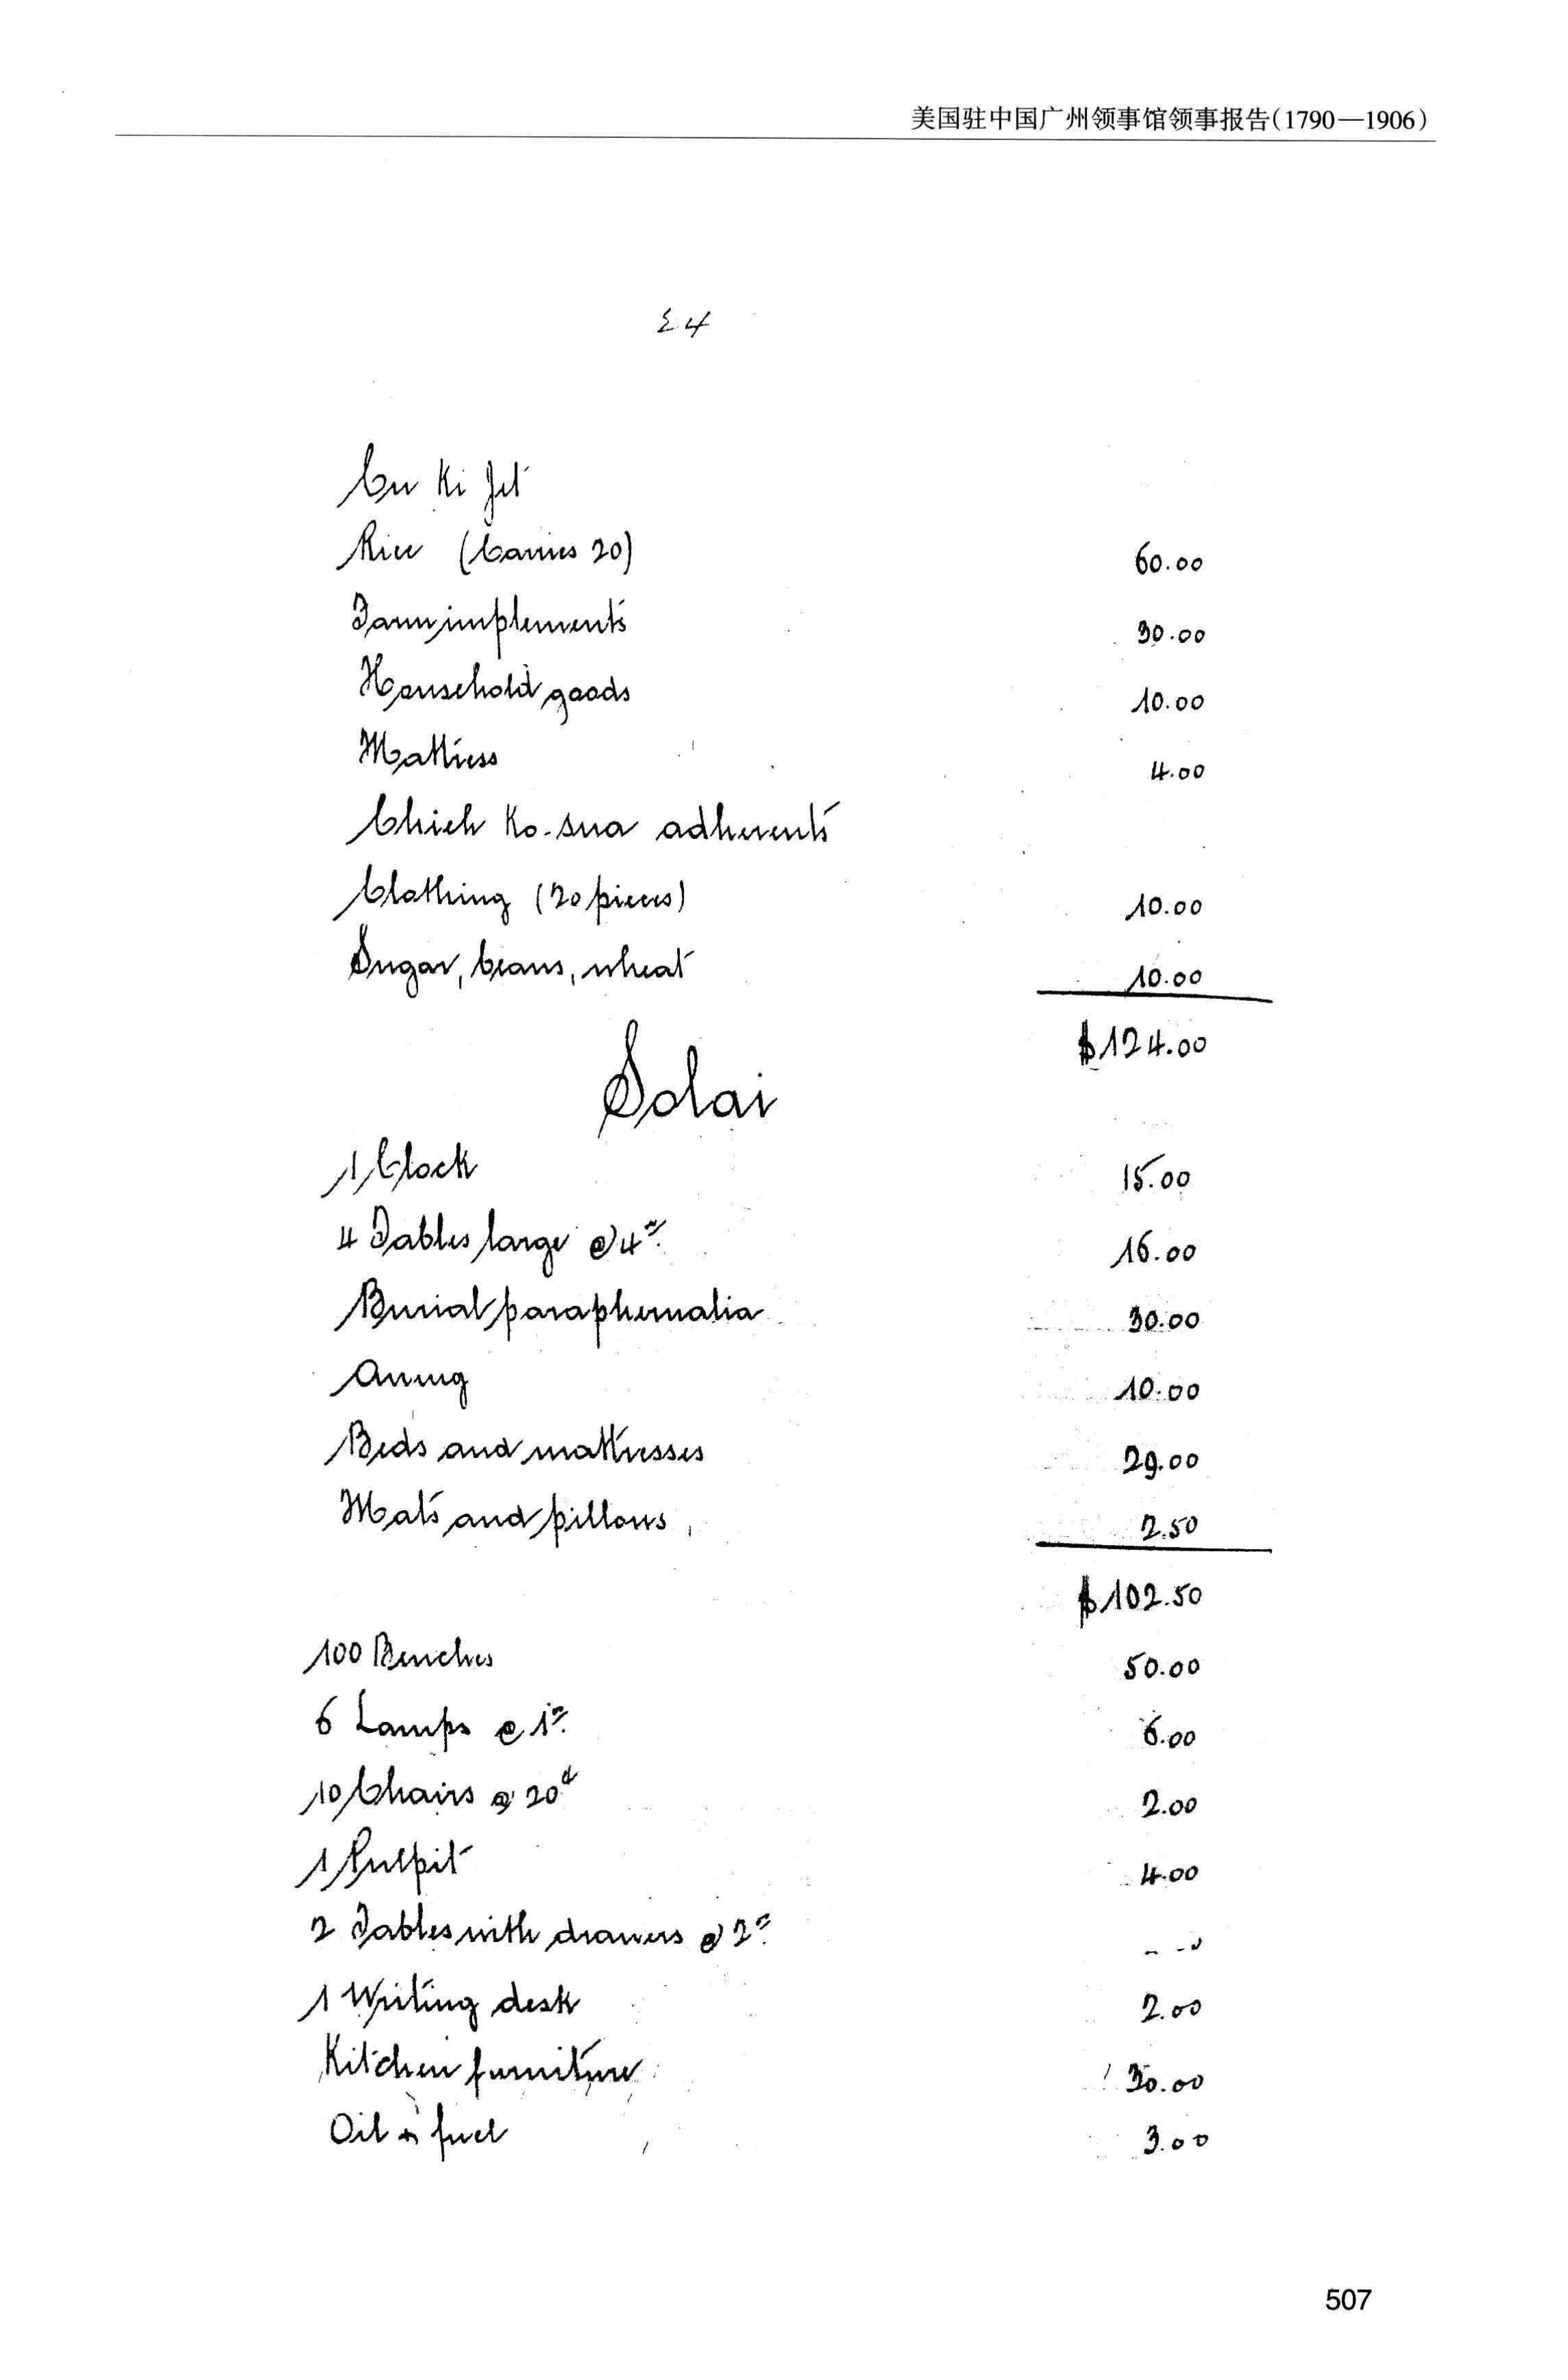 美国驻中国广州领事馆领事报告(1790—1906)
24
Cu Ki Jit
Rice (Carries 20) 60.00
Farm implements 30.00
Household goods 10.00
Mattress 4.00
Chieh Ko-sua adherents
Clothing (20 pieces) 10.00
Sugar, beans, wheat 10.00
$124.00
Solai
1 Clock 15.00
4 Tables large @ 4 16.00
Burial paraphernalia 30.00
Awning 10.00
Beds and mattresses 29.00
Mats and pillows 2.50
$102.50
100 Benches 50.00
6 Lamps @ 1 6.00
10 Chairs @ 20¢ 2.00
1 Pulpit 4.00
2 Tables with drawers @ 2
1 Writing desk 2.00
Kitchen furniture 30.00
Oil & fuel 3.00
507